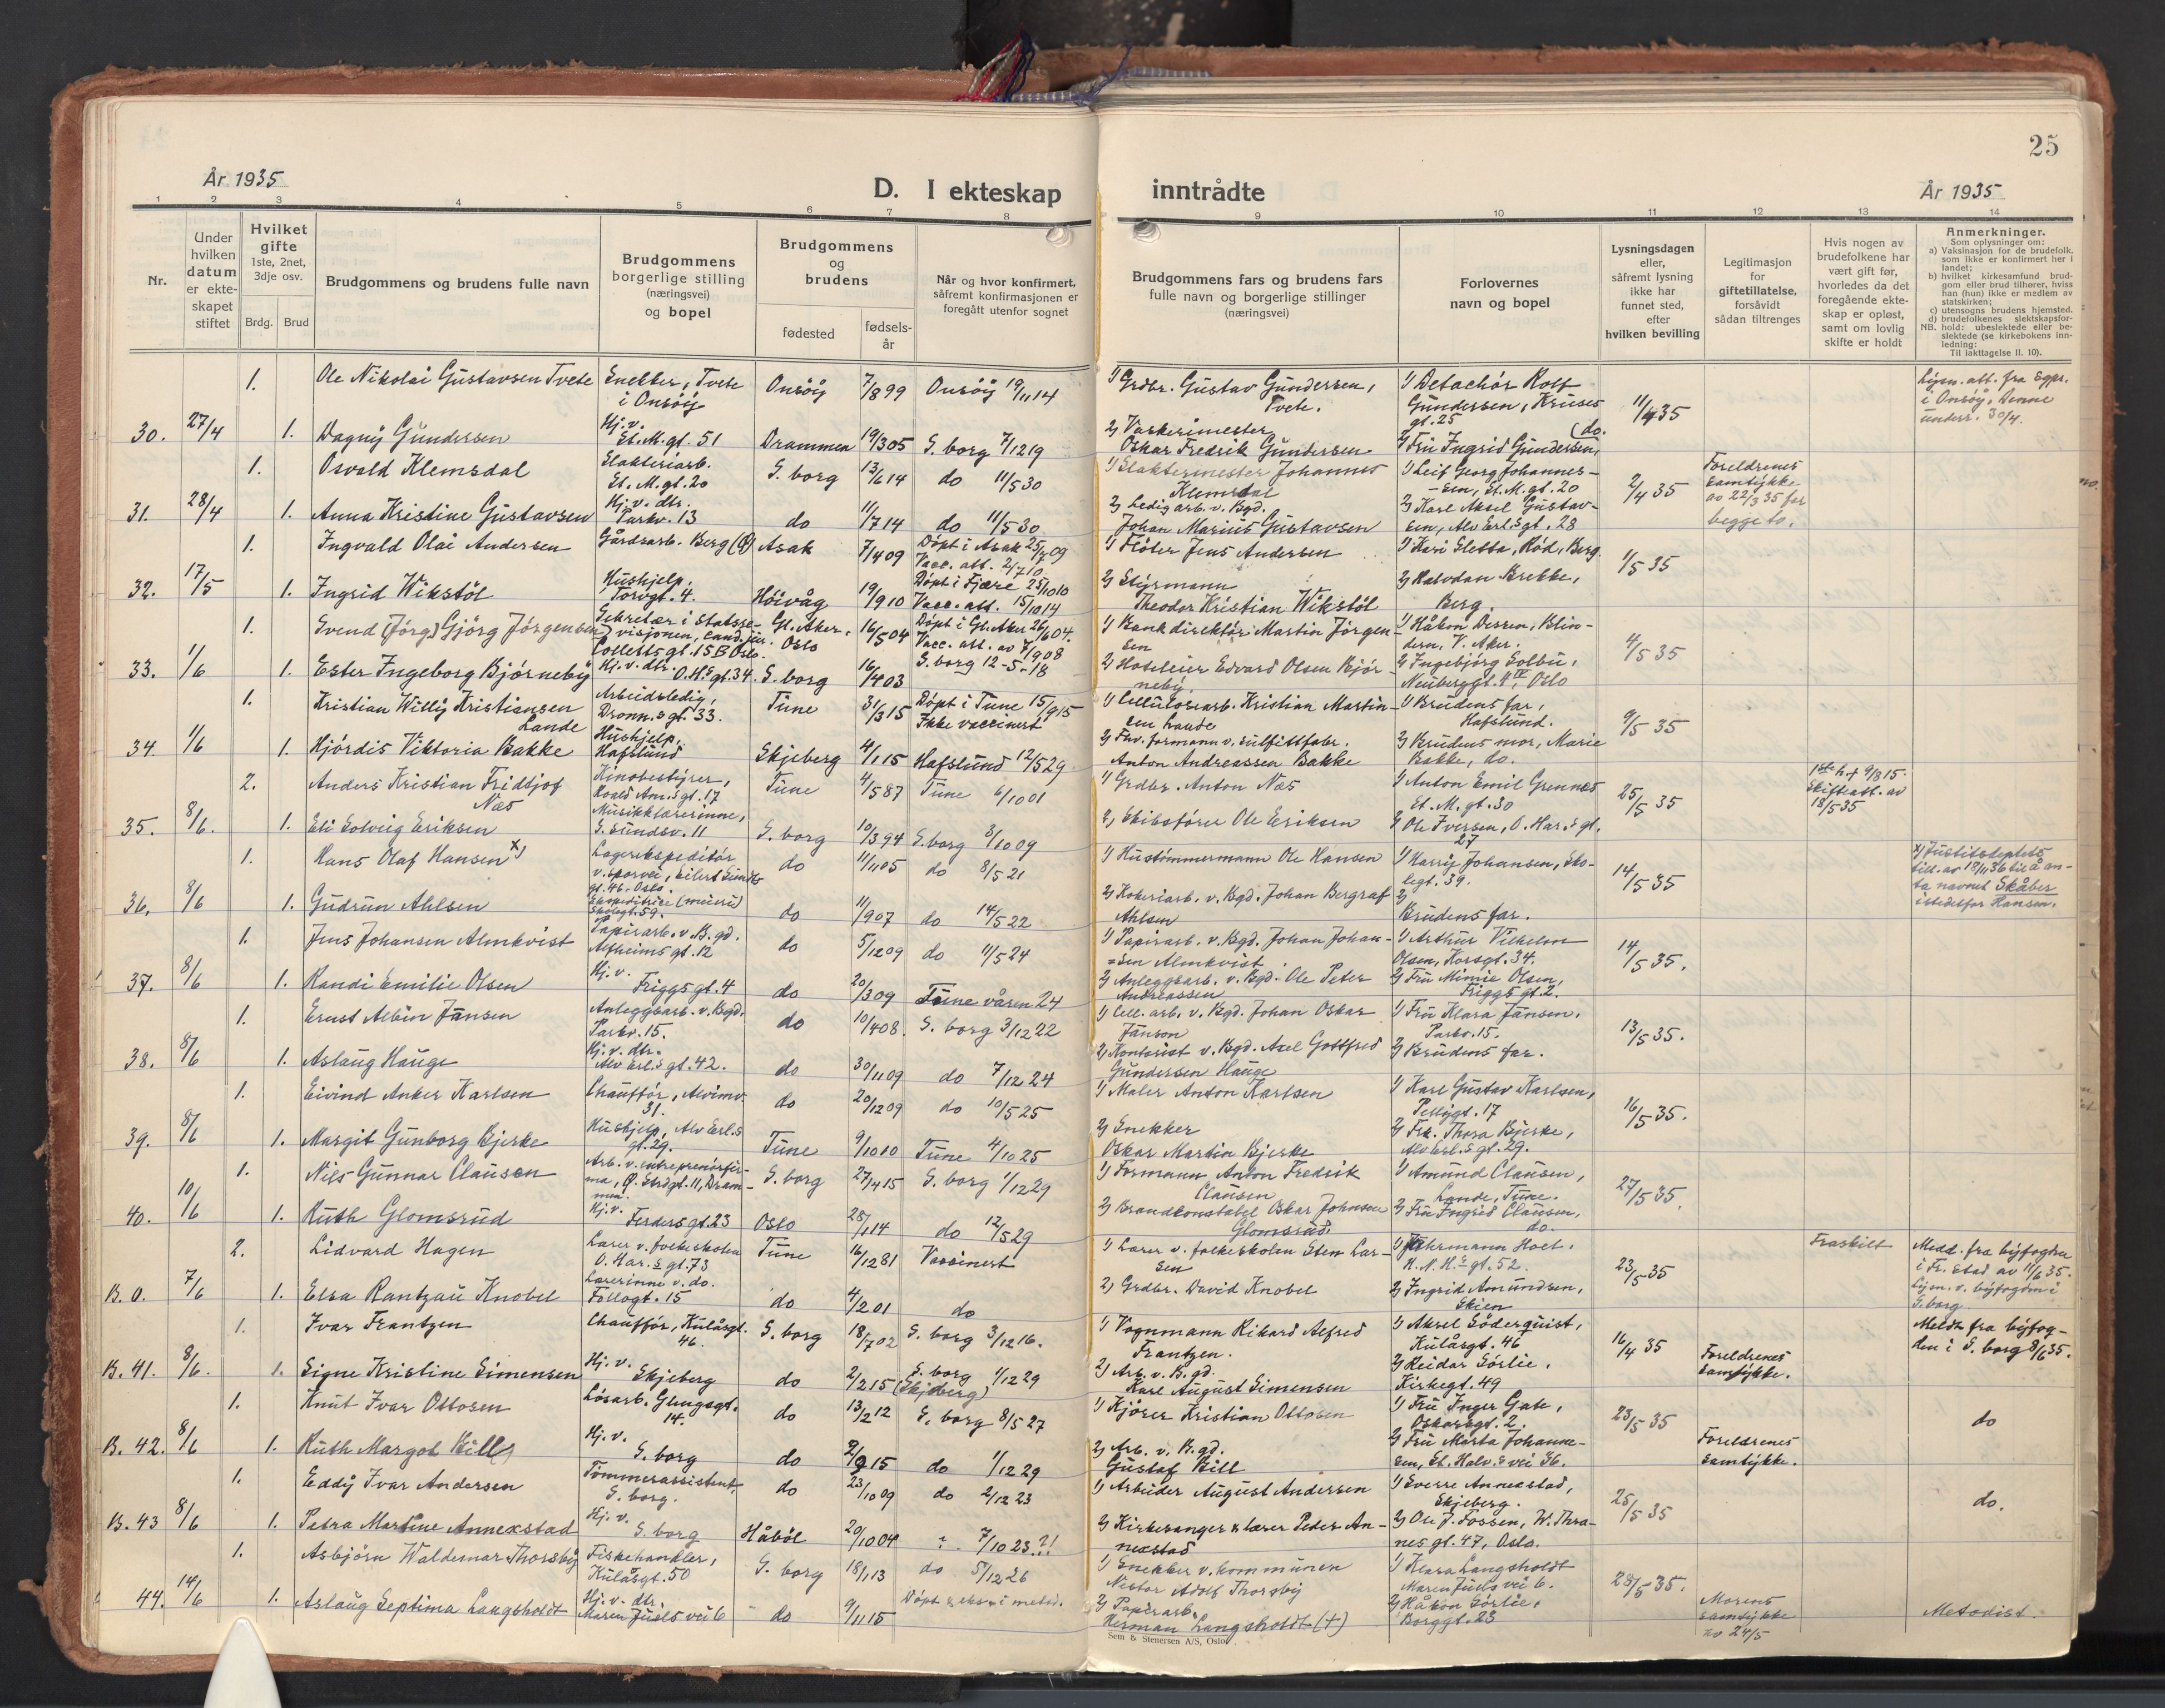 25
År 1935
D. I ekteskap
inntrådte
År 1935
1 2 3 4 5 6 7 8 9 10 11 12 13 14
Nr.
Under hvilken datum er ekte-skapet stiftet
Hvilket gifte 1ste, 2net, 3dje osv.
Brdg. Brud
Brudgommens og brudens fulle navn
Brudgommens borgerlige stilling (næringsvei) og bopel
Brudgommens og brudens
fødested
fødsels-år
Når og hvor konfirmert, såfremt konfirmasjonen er foregått utenfor sognet
Brudgommens fars og brudens fars fulle navn og borgerlige stillinger (næringsvei)
Forlovernes navn og bopel
Lysningsdagen eller, såfremt lysning ikke har funnet sted, efter hvilken bevilling
Legitimasjon for giftetillatelse, forsåvidt sådan tiltrenges
Hvis nogen av brudefolkene har vært gift før, hvorledes da det foregående ekte-skap er opløst, samt om lovlig skifte er holdt
Anmerkninger.
Som oplysninger om:
a) Vaksinasjon for de brudefolk, som ikke er konfirmert her i landet;
b) hvilket kirkesamfund brud-gom eller brud tilhører, hviss han (hun) ikke er medlem av statskirken;
c) utensogns brudens hjemsted.
d) brudefolkenes slektskapsfor-hold: ubeslektede eller be-slektede (se kirkebokens inn-ledning:
NB.
Til iakttagelse II. 10).
1. Ole Nikolai Gustavsen Tvete Snekker, Tvete i Onsöy Onsöy 7/8 99 Onsöy 19/11 14 1) Grdbr. Gustav Gundersen, Tvete. 1) Detachör Rolf Gundersen, Kruses gt. 25 11/4 35 Lysn. att. fra Sgpr. i Onsöy. Denne underr. 30/4.
30. 27/4 1. Dagny Gundersen Hj. v. St. M. gt. 51 Drammen 19/3 05 S. borg 7/12 19 2) Værkerimester Oskar Fredrik Gundersen 2) Fru Ingrid Gundersen, do.
1. Osvald Klemsdal Slakteriarb. St. M. gt. 20 S. borg 13/6 14 do 11/5 30 1) Slaktermester Johannes Klemsdal 1) Leif Georg Johannes-sen, St. M. gt. 20 2/4 35 Foreldrenes samtykke av 22/3 35 for begge to.
31. 28/4 1. Anna Kristine Gustavsen Hj. v. dtr. Parkv. 13 do 11/7 14 do 11/5 30 2) Ledig arb. v. Bgd. Johan Marius Gustavsen 2) Karl Aksel Gustav-sen, Alv Erl.s gt. 28
1. Ingvald Olai Andersen Gårdsarb. Berg (Ø) Asak 7/4 09 Döpt i Asak 25/7 09 Vacc. att. 2/7 10 1) Flöter Jens Andersen 1) Kari Sletta, Röd, Berg. 1/5 35
32. 17/5 1. Ingrid Wikstöl Hushjelp. Torvgt. 4. Höivåg 19/9 10 Döpt i Fjære 25/10 10 Vacc. att. 15/10 14 2) Styrmann Theodor Kristian Wikstöl 2) Halvdan Brekke, Berg.
1. Svend (Jörg) Gjörg Jörgensen Sekretær i Statsre-visjonen, cand. jur. Colletts gt. 15 B Oslo. Gl. Aker, Oslo 16/5 04 Döpt i Gl. Aker 26/6 04. Vacc. att. av 7/9 08 1) Bankdirektör Martin Jörgen-sen 1) Håkon Dessen, Blin-dern, V. Aker. 4/5 35
33. 1/6 1. Ester Ingeborg Bjørneby Hj. v. dtr. O. H.s gt. 34. S. borg 16/4 03 S. borg 12-5-18 2) Hoteleier Edvard Olsen Bjør-neby. 2) Ingebjörg Solbu, Neuberggt. 4 IV, Oslo
1. Kristian Willy Kristiansen Lande Arbeidsledig, Dronn.s gt. 33. Tune 31/3 15 Döpt i Tune 15/9 15 Ikke vaccinert 1) Cellulosearb. Kristian Martin-sen Lande 1) Brudens far, Hafslund. 9/5 35
34. 1/6 1. Hjördis Viktoria Bakke Hushjelp, Hafslund Skjeberg 4/1 15 Hafslund 12/5 29 2) Fhv. formann v. sulfittfabr. Anton Andreassen Bakke 2) Brudens mor, Marie Bakke, do.
2. Anders Kristian Fridtjof Næs Kinobestyrer, Roald Am.s gt. 17 Tune 4/5 87 Tune 6/10 01 1) Grdbr. Anton Næs 1) Anton Emil Grennes St. M. gt. 30 25/5 35 1ste h. + 9/8 15. Skifteatt. av 18/5 35
35. 8/6. 1. Eli Solveig Eriksen Musikklærerinne, S. Sundsv. 11 S. borg 10/3 94 S. borg 3/10 09 2) Skibsförer Ole Eriksen 2) Ole Iversen, O. Har.s gt. 27
1. Hans Olaf Hansen x) Lagerekspeditör v. sporvei, Eilert Sundts gt. 46, Oslo. do 11/11 05 do 8/5 21 1) Hustömmermann Ole Hansen 1) Harry Johansen, Sko-legt. 39. 14/5 35 x) Justitsdeptets till. av 18/11 36 til å an-ta navnet Skåber istedetfor Hansen.
36. 8/6 1. Gudrun Ahlsen Ekspeditrise (meieri) Skolegt. 59. do 11/9 07 do 14/5 22 2) Kokeriarb. v. Bgd. Johan Bergraf Ahlsen 2) Brudens far.
1. Jens Johansen Almkvist Papirarb. v. B. gd. Alfheimsgt. 12 do 5/12 09 do 11/5 24 1) Papirarb. v. Bgd. Johan Johan-sen Almkvist 1) Arthur Vilhelm Olsen, Korsgt. 34. 14/5 35.
37. 8/6 1. Randi Emilie Olsen Hj. v. Friggs gt. 4 do 20/3 09 Tune våren 24 2) Anleggsarb. v. Bgd. Ole Peter Andreassen 2) Fru Mimie Olsen, Friggs gt. 2.
1. Ernst Albin Jansen Anleggsarb. v. Bgd. Parkv. 15. do 10/4 08. S. borg 3/12 22 1) Cell. arb. v. Bgd. Johan Oskar Janson 1) Fru Klara Jansen, Parkv. 15. 13/5 35.
38. 8/6 1. Aslaug Hauge Hj. v. dtr. Alv Erl.s gt. 42. do 30/11 09 do 7/12 24 2) Kontorist v. Bgd. Axel Gottfred Gundersen Hauge 2) Brudens far.
1. Eivind Anker Karlsen Chauffør, Alvimv. 31. do 20/12 09 do 10/5 25 1) Maler Anton Karlsen 1) Karl Gustav Karlsen, Pellygt. 17 16/5 35.
39. 8/6 1. Margit Gunborg Bjerke Hushjelp, Alv Erl.s gt. 29. Tune 9/10 10 Tune 4/10 25 2) Snekker Oskar Martin Bjerke 2) Frk. Thora Bjerke, Alv Erl.s gt. 29.
1. Nils Gunnar Clausen Arb. v. entreprenörfir-ma, Ø. Strdgt. 11, Dram-men. S. borg 27/4 15 S. borg 1/12 29 1) Formann Anton Fredrik Clausen 1) Amund Clausen, Lande, Tune. 27/5 35.
40. 10/6 1. Ruth Glomsrud Hj. v. Ferdersgt. 23 Oslo 28/1 14 do 12/5 29 2) Brandkonstabel Oskar Johnsen Glomsrud. 2) Fru Ingrid Clausen, do.
2. Lidvard Hagen Lærer v. folkeskolen O. Har.s gt. 73 Tune 16/12 81 Vaccinert 1) Lærer v. folkeskolen Sten Lar-sen 1) Hermann Hoel, H. N. H.s gt. 52. 23/5 35 Fraskilt Medd. fra byfogden i Fr. stad av 11/6 35. Lysn. v. byfogden i S. borg
B. 0. 7/6 1. Elsa Rantzau Knobel Lærerinne v. do. Follogt. 15 do 4/2 01 do 2) Grdbr. David Knobel 2) Ingrid Amundsen, Skien
1. Ivar Frantzen Chauffør, Kulåsgt. 46. S. borg 18/7 02 S. borg 3/12 16. 1) Vognmann Rikard Alfred Frantzen. 1) Aksel Söderquist, Kulåsgt. 46 16/4 35 Foreldrenes samtykke. Meldt fra byfog-den i S. borg 8/6 35.
B. 41. 8/6. 1. Signe Kristine Simensen Hj. v. Skjeberg do 2/2 15 S. borg 1/12 29 (Skjeberg) 2) Arb. v. B. gd. Karl August Simensen 2) Reidar Sörlie, Kirkegt. 49
1. Knut Ivar Ottosen Løsarb. Glengsgt. 14. do 13/2 12 S. borg 8/5 27 1) Kjörer Kristian Ottosen 1) Fru Inger Gate, Oskarsgt. 2. 23/5 35 do
B. 42. 8/6 1. Ruth Margot Bill Hj. v. S. borg do 2/9 15 do 1/12 29 2) Arb. v. B. gd. Gustaf Bill 2) Fru Marta Johanne-sen, St. Halv.s vei 36. Foreldrenes samtykke.
1. Eddy Ivar Andersen Tömmerassistent, S. borg. do 23/10 09 do 2/12 23 1) Arbeider August Andersen 1) Sverre Annexstad, Skjeberg. 25/5 35 do.
B. 43 8/6 1. Petra Martine Annexstad Hj. v. S. borg Håböl 20/10 04 ? 7/10 23 ?! 2) Kirkesanger & lærer Peder An-nexstad 2) Ole J. Fossen, W. Thra-nes gt. 47, Oslo.
1. Asbjörn Waldemar Thorsby Fiskehandler, Kulåsgt. 50 S. borg 18/1 13 do 5/12 26 1) Snekker v. kommunen Nestor Adolf Thorsby 1) Klara Langsholdt Maren Juels vei 6. 28/5 35.
44. 14/6 1. Aslaug Septima Langsholdt Hj. v. dtr. Maren Juels vei 6 do 9/11 15 Döpt & eks. i metod. 2) Papirarb. Herman Langsholdt (+) 2) Håkon Sörlie, Borggt. 23 Morens samtykke av 24/5 Metodist.
Sem & Stenersen A/S, Oslo